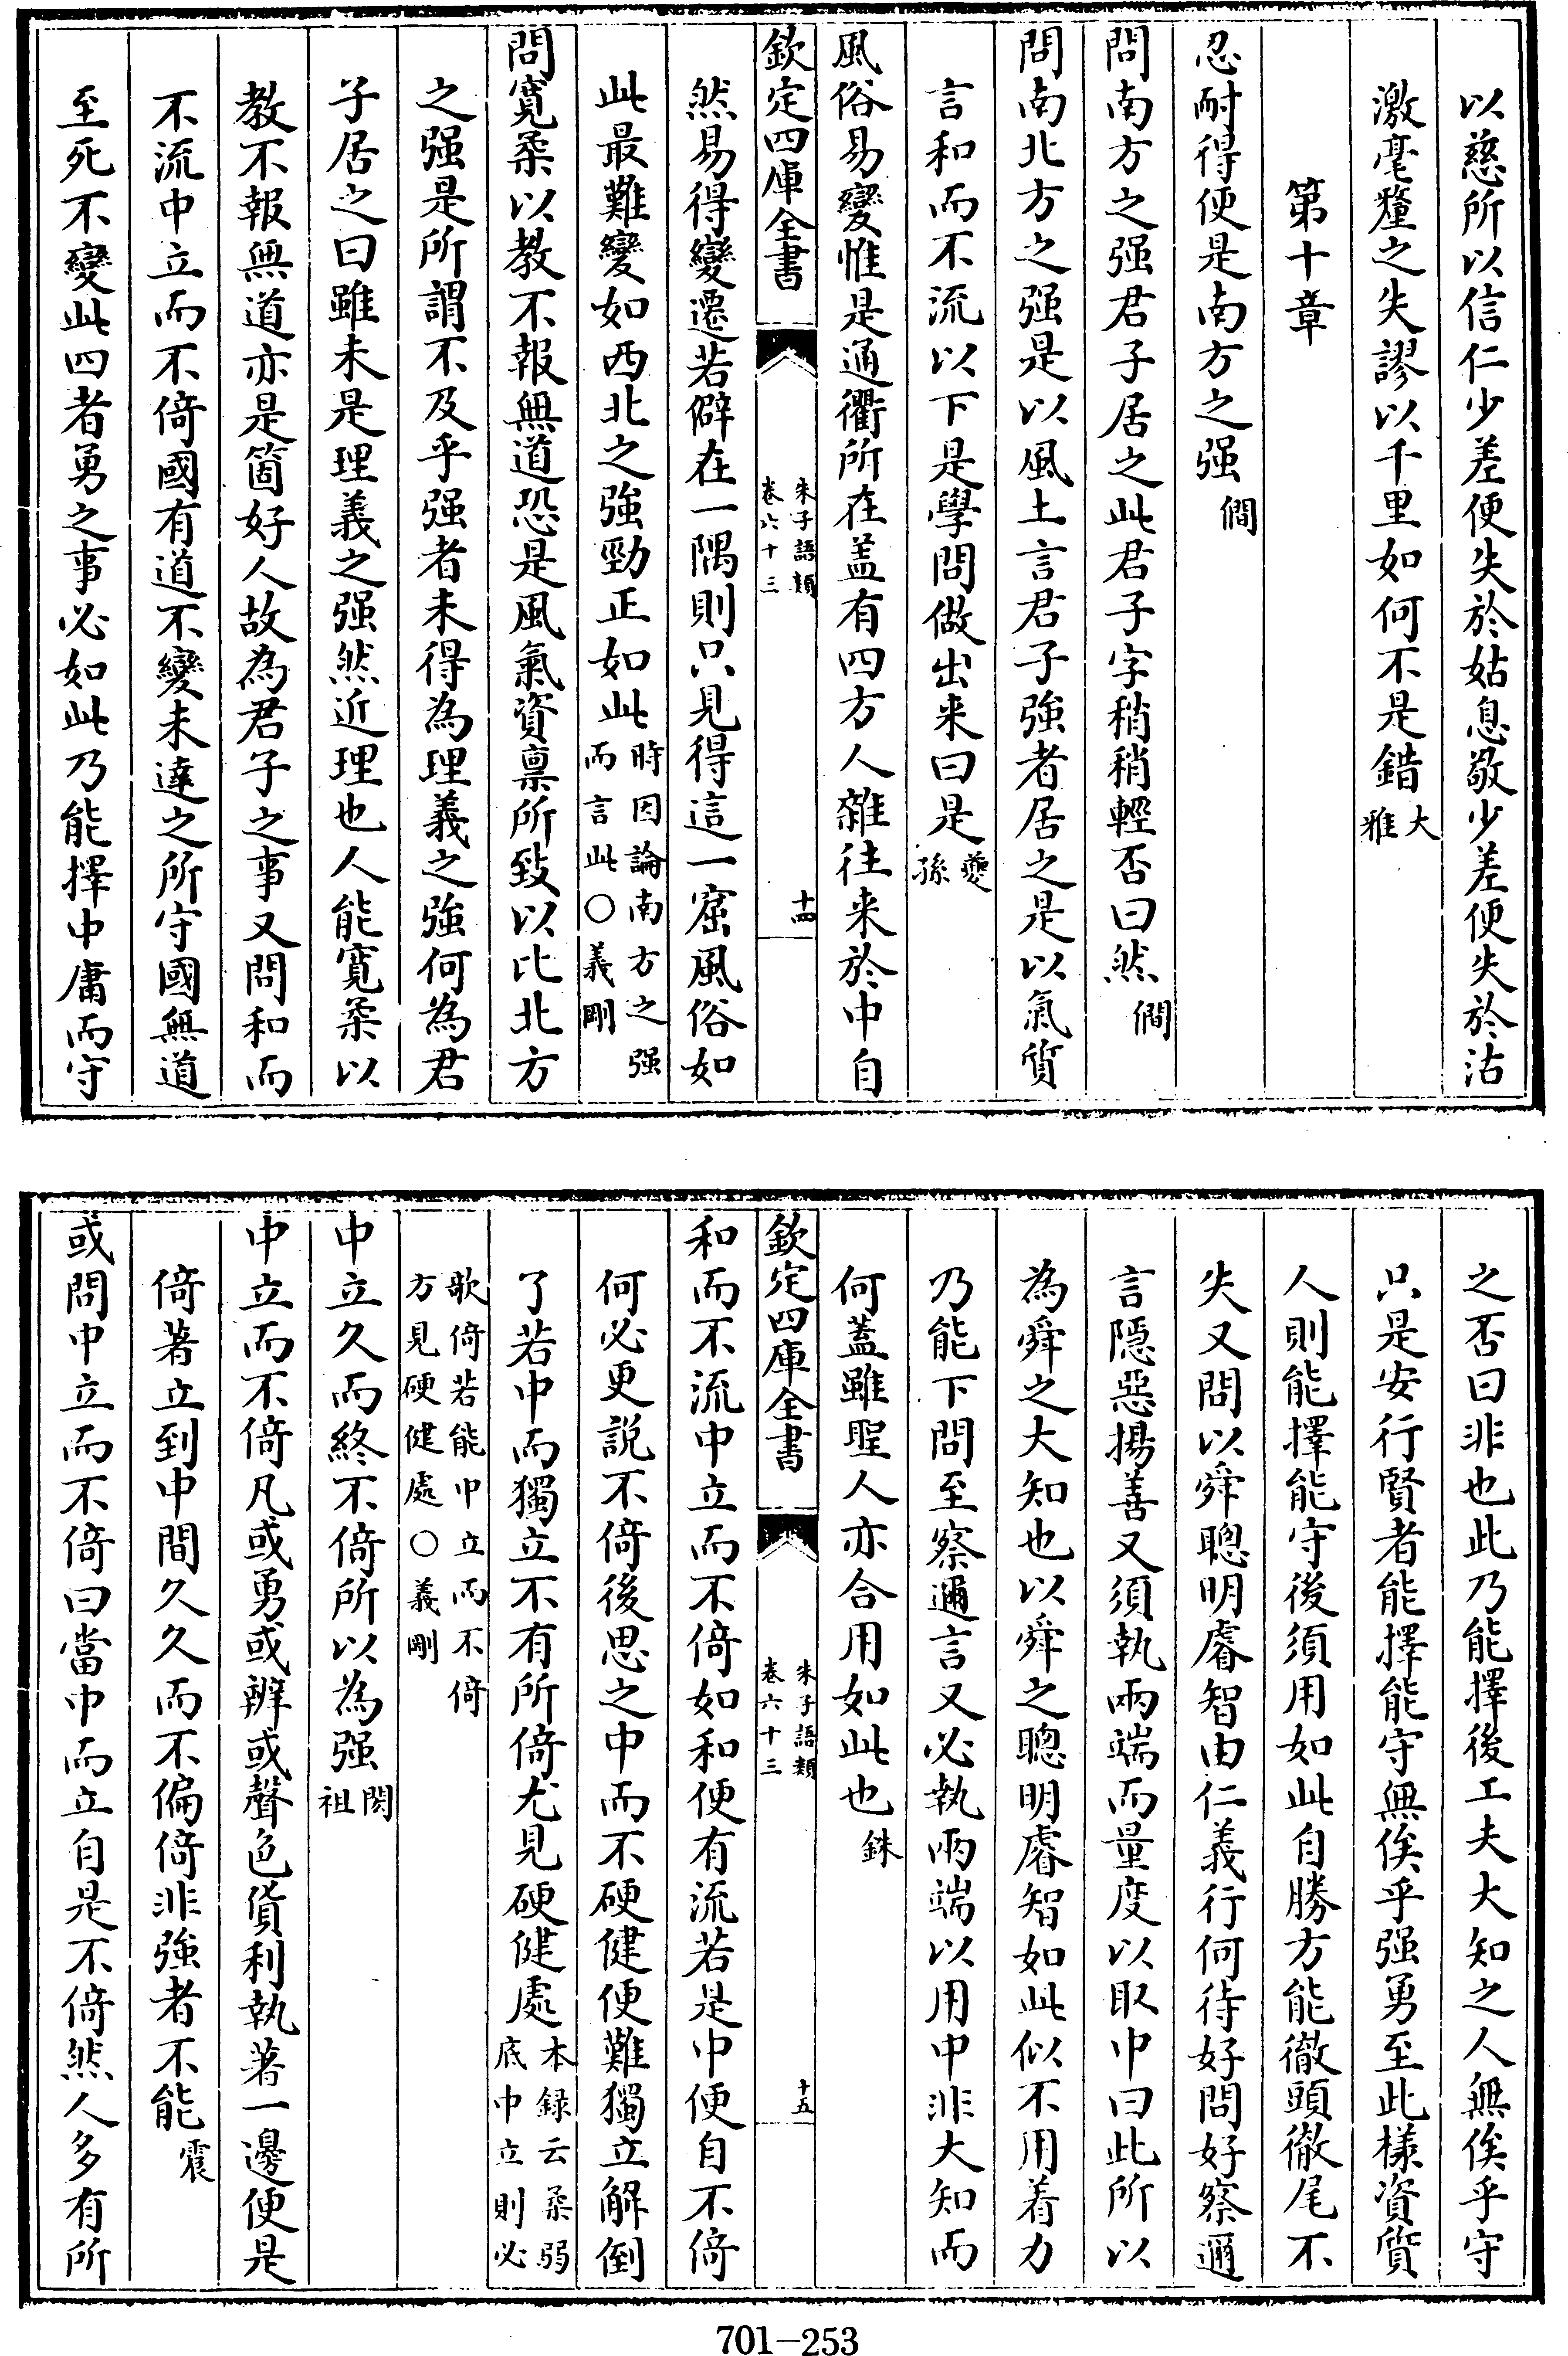 以慈所以信仁少差便失於姑息敬少差便失於沽
激毫釐之失謬以千里如何不是錯大雅
第十章
忍耐得便是南方之强僩
問南方之强君子居之此君子字稍稍輕否曰然僩
問南北方之强是以風土言君子強者居之是以氣質
言和而不流以下是學問做出来曰是夔孫
風俗易變惟是通衢所在盖有四方人雜往来於中自
欽定四庫全書
朱子語類
卷六十三
十四
然易得變遷若僻在一隅則只見得這一窟風俗如
此最難變如西北之強勁正如此時因論南方之强而言此○義剛
問寛柔以教不報無道恐是風氣資禀所致以比北方
之强是所謂不及乎强者未得為理義之強何為君
子居之曰雖未是理義之强然近理也人能寛柔以
教不報無道亦是箇好人故為君子之事又問和而
不流中立而不倚國有道不變未達之所守國無道
至死不變此四者勇之事必如此乃能擇中庸而守
之否曰非也此乃能擇後工夫大知之人無俟乎守
只是安行賢者能擇能守無俟乎强勇至此樣資質
人則能擇能守後須用如此自勝方能徹頭徹尾不
失又問以舜聰明睿智由仁義行何待好問好察邇
言隱惡揚善又須執兩端而量度以取中曰此所以
為舜之大知也以舜之聰明睿智如此似不用着力
乃能下問至察邇言又必執兩端以用中非大知而
何蓋雖聖人亦合用如此也銖
欽定四庫全書
朱子語類
卷六十三
十五
和而不流中立而不倚如和便有流若是中便自不倚
何必更説不倚後思之中而不硬健便難獨立解倒
了若中而獨立不有所倚尤見硬健處本録云柔弱底中立則必
欹倚若能中立而不倚方見硬健處○義剛
中立久而終不倚所以為强閎祖
中立而不倚凡或勇或辨或聲色貨利執著一邊便是
倚著立到中間久久而不偏倚非強者不能震
或問中立而不倚曰當中而立自是不倚然人多有所
701-253